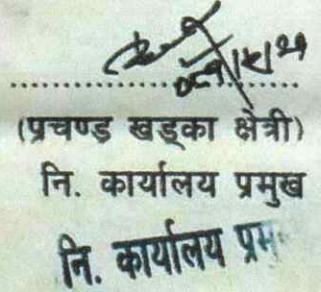 (प्रचण्ड खड्का क्षेत्री)
नि. कार्यालय प्रमुख
नि. कार्यालय